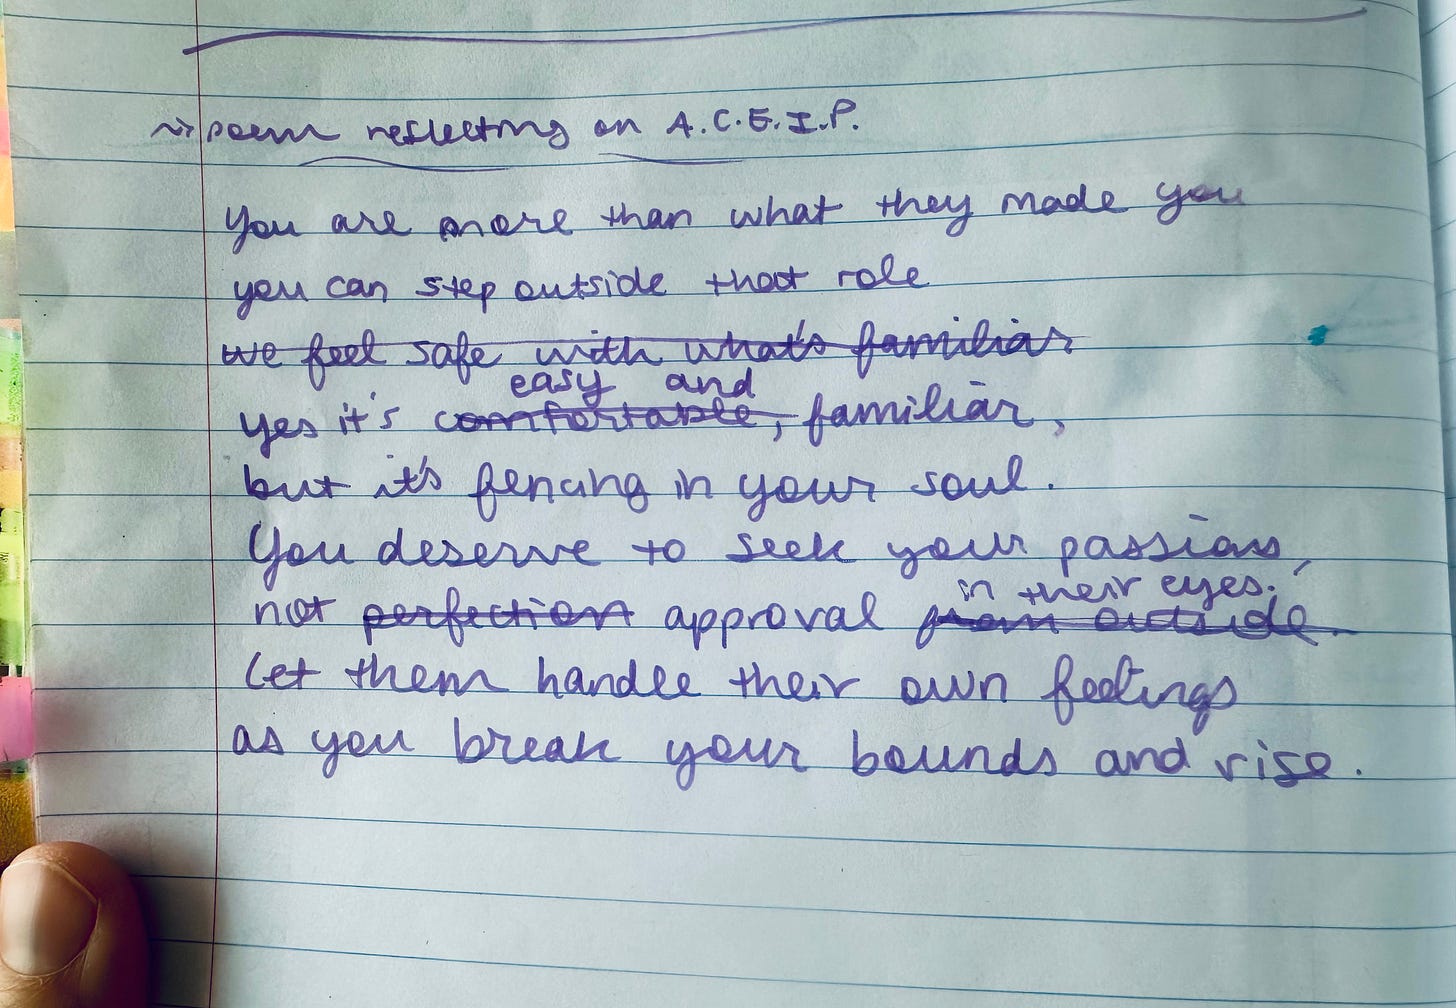 poem reflecting on A.C.E.I.P.
You are more than what they made you
you can step outside that role
we feel safe with what's familiar
easy and
yes it's comfortable, familiar,
but it's fencing in your soul.
You deserve to seek your passions,
in their eyes.
not perfection approval from outside.
Let them handle their own feelings
as you break your bounds and rise.